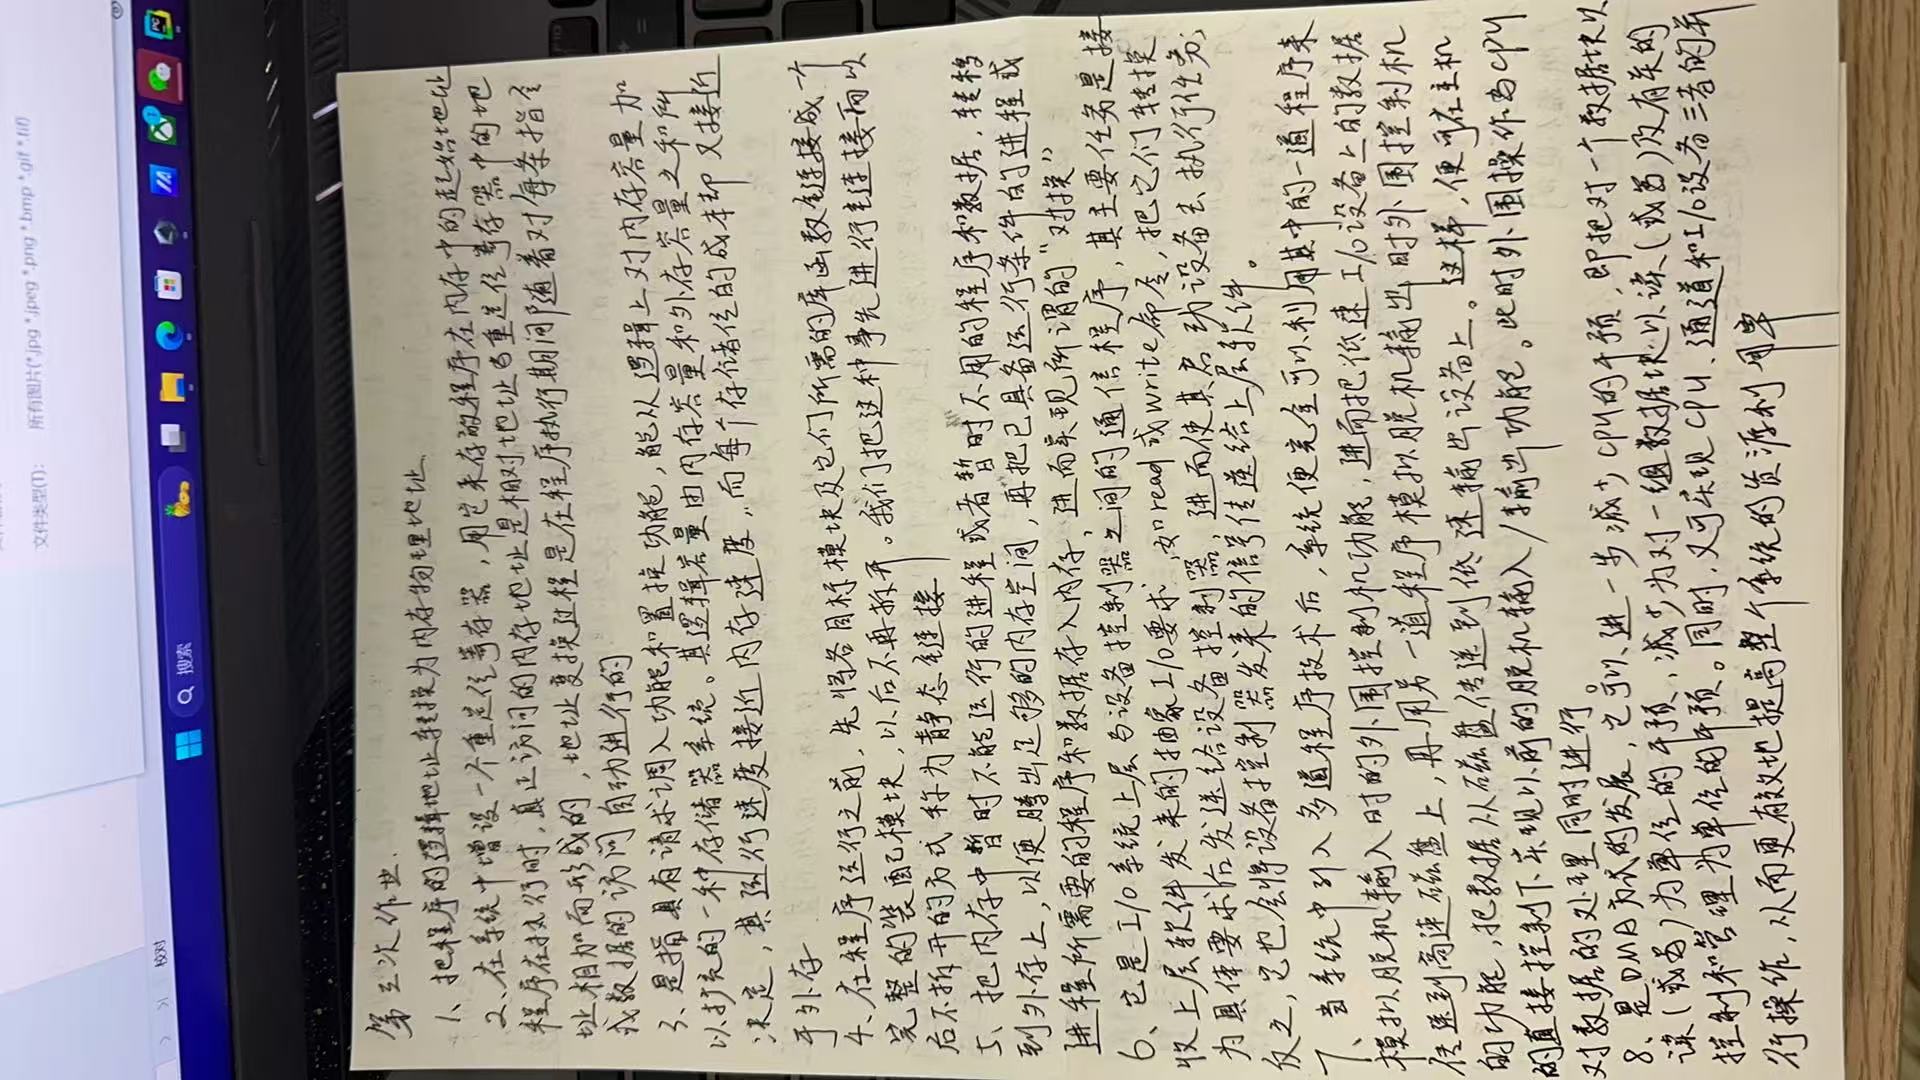 第三次作业.
1、把程序的逻辑地址转换为内存物理地址.
2、在系统中增设一个重定位寄存器,用它来存放程序在内存中的起始地址
程序在执行时,真正访问的内存地址是相对地址与重定位寄存器中的地
址相加而形成的,地址变换过程是在程序执行期间随着对每条指令
或数据的访问自动进行的
3、是指具有请求调入功能和置换功能,能从逻辑上对内存容量加
以扩充的一种存储器系统。其逻辑容量由内存容量和外存容量之和所
决定,其运行速度接近内存速度,而每个存储位的成本却又接近
于外存
4、在程序运行之前,先将各目标模块及它们所需的库函数链接成一个
完整的装配模块,以后不再拆开。我们把这种事先进行链接而以
后不拆开的方式称为静态链接
5、把内存中暂时不能运行的进程或者暂时不用的程序和数据,转移
到外存上,以便腾出足够的内存空间,再把已具备运行条件的进程或
进程所需要的程序和数据存入内存,进而实现所谓的"对换"
6、它是I/O系统上层与设备控制器之间的通信程序,其主要任务是接
收上层软件发来的抽象I/O要求,如read或write命令,把它们转换
为具体要求后发送给设备控制器,进而使其启动设备去执行任务;
反之,它也会将设备控制器发来的信号传送给上层软件。
7、当系统中引入多道程序技术后,系统便完全可以利用其中的一道程序来
模拟以脱机输入时的外围控制机功能,进而把低速I/O设备上的数据
传送到高速磁盘上,再用另一道程序模拟脱机输出时外围控制机
的功能,把数据从磁盘传送到低速输出设备上。这样,便可在主机
的直接控制下实现以前的脱机输入/输出功能。此时外围操作与CPU
对数据的处理同时进行
8、是DMA方式的发展,它可以进一步减少CPU的干预,即把对一个数据块以
读(或写)为单位的干预,减少为对一组数据块以读(或写)及有关的
控制和管理为单位的干预。同时,又可实现CPU、通道和I/O设备三者的并
行操作,从而更有效地提高整个系统的资源利用率
文件类型(T):
所有图片(*.jpg *.jpeg *.png *.bmp *.gif *.tif)
校对
搜索